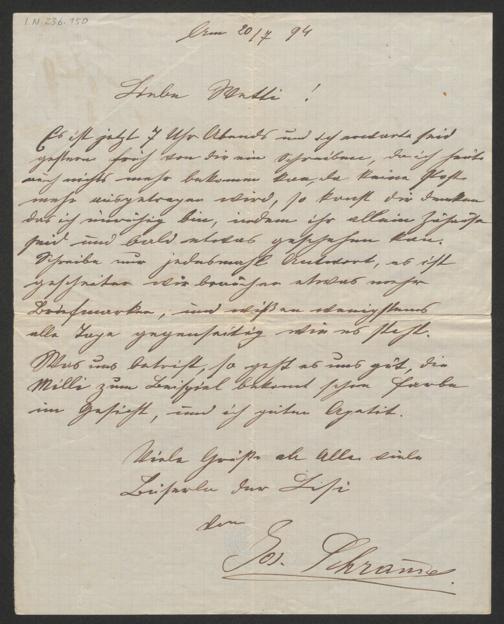 I.N. 236.150
am 20/7 94
Liebe Netti !
Es ist jetzt 7 Uhr Abends und ich erwarte seid
gestern früh von dir ein Schreiben, da ich heute
auch nichts mehr bekomen kan, da keine Post
mehr ausgetragen wird, so kanst du denken
das ich unruhig bin, indem ihr allein zuhause
seid und bald etwas geschehen kan.
Schreibe mir jedesmahl Antwort, es ist
gescheiter wir brauchen etwas mehr
Briefmarken, und wissen wenigstens
alle Tage gegenseitig wie es steht.
Was uns betrift, so geht es uns gut, die
Milli zum Beispiel bekomt schon Farbe
im Gesicht, und ich guten Apetit.
Viele Grüße an Alle viele
Busserln der Lisi
von
Jos. Schramel